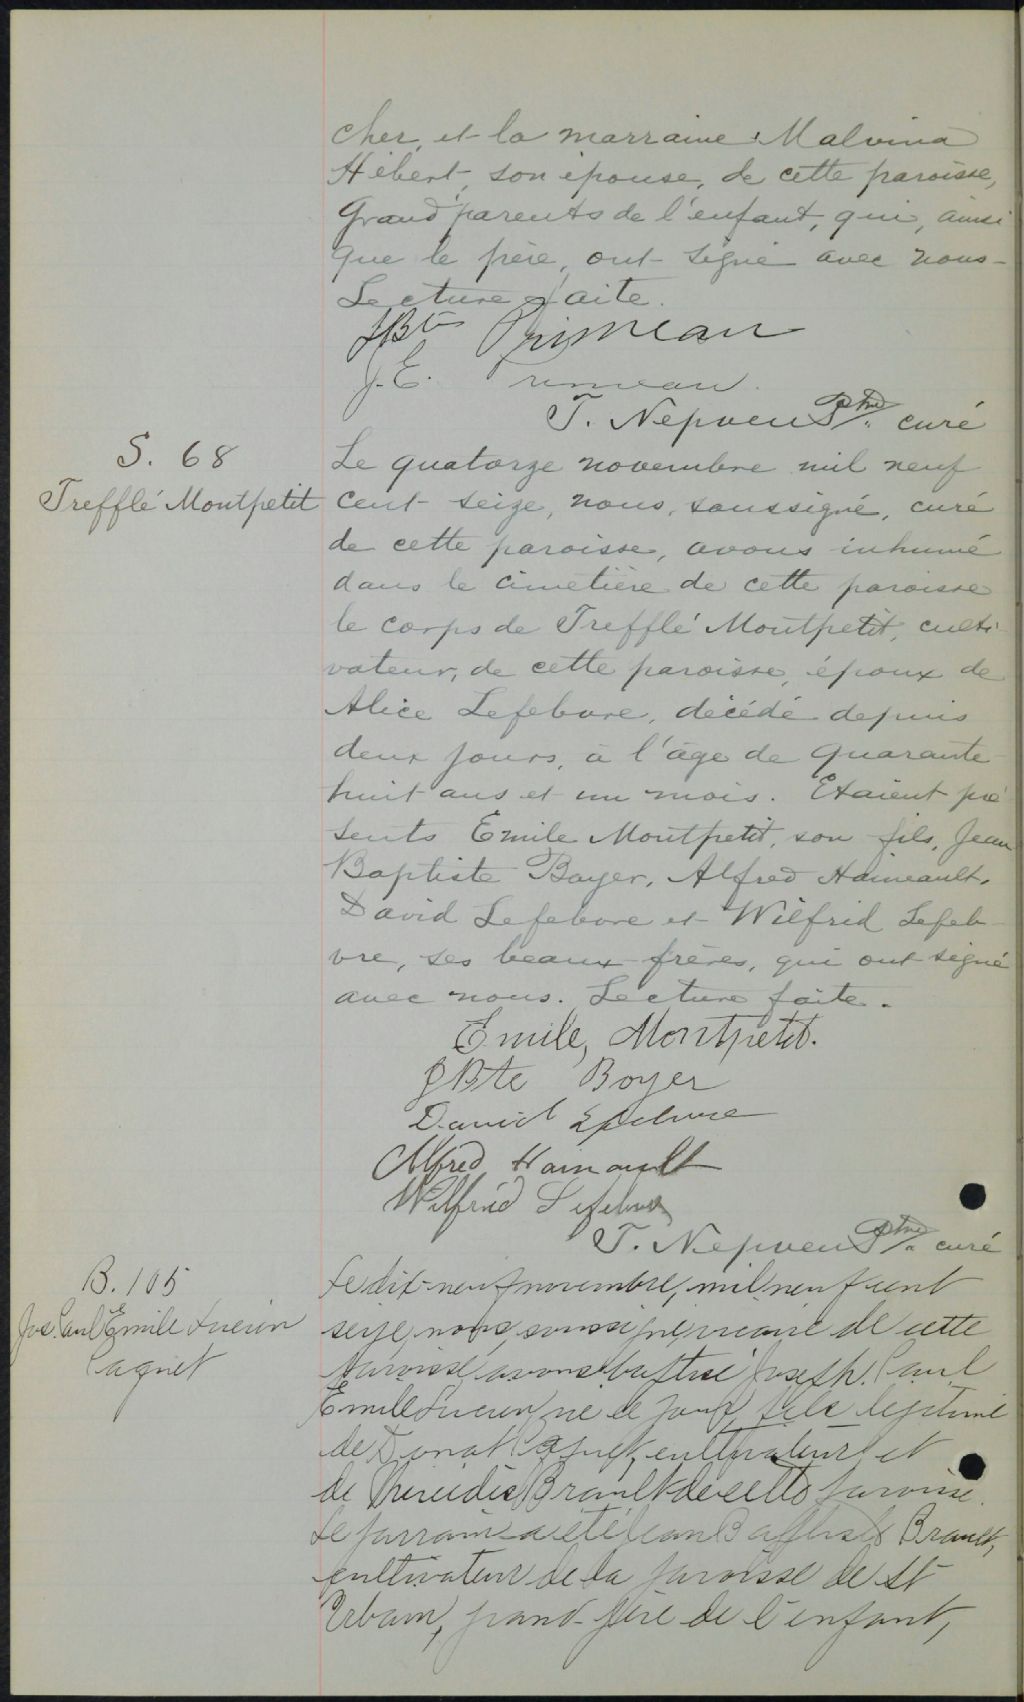 cher, et la marraine Malvina
Hébert, son épouse, de cette paroisse,
Grand'parents de l'enfant, qui, ainsi
que le père, ont signé avec nous-
Lecture faite.
JBte Primeau
J. E. Primeau.
T. Nepveu Ptre curé
S. 68
Trefflé Montpetit
Le quatorze novembre mil neuf
cent seize, nous, soussigné, curé
de cette paroisse, avons inhumé
dans le cimetière de cette paroisse
le corps de Trefflé Montpetit, culti-
vateur, de cette paroisse, époux de
Alice Lefebvre, décédé depuis
deux jours, à l'âge de quarante-
huit ans et un mois. Etaient pré-
sents Emile Montpetit, son fils, Jean
Baptiste Boyer, Alfred Haineault,
David Lefebvre et Wilfrid Lefeb-
vre, ses beaux-frères, qui ont signé
avec nous. Lecture faite.
Emile, Montpetit.
JBte Boyer
David Lefebvre
Alfred Hainault
Wilfrid Lefebvre
T. Nepveu Ptre curé
B. 105
Jos. Paul Emile Lucien
Caquet
Le dix-neuf novembre, mil neuf cent
seize, nous, soussigné, vicaire de cette
paroisse, avons baptisé Joseph, Paul
Emile Lucien, né ce jour, fils légitime
de Donat Caquet, cultivateur et
de Brault de cette paroisse.
Le parrain a été Jean Baptiste Brault,
cultivateur de la paroisse de St
Urbain, grand-père de l'enfant,